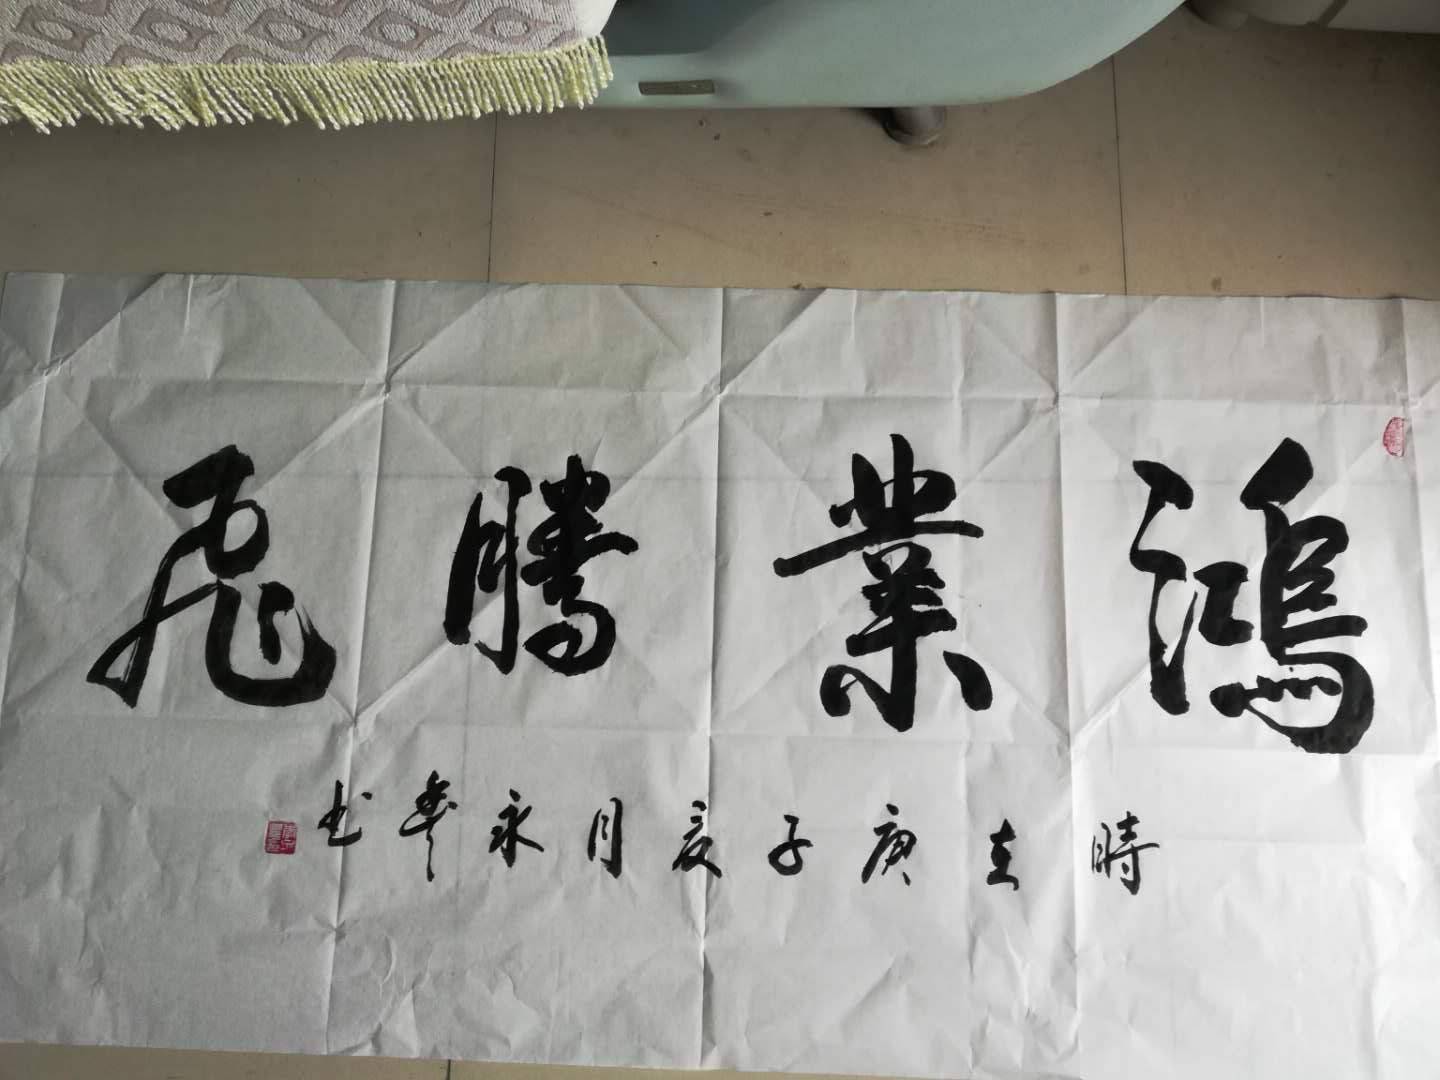 鴻業騰飛
時在庚子夏月永峯书